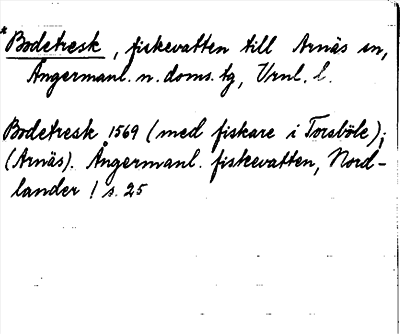 *Bodetresk, fiskevatten till Arnäs sn,
Ångermanl. n. doms. tg, Vrnl. l.
Bodetresk 1569 (med fiskare i Torsböle);
(Arnäs). Ångermanl. fiskevatten, Nord-
lander / s. 25